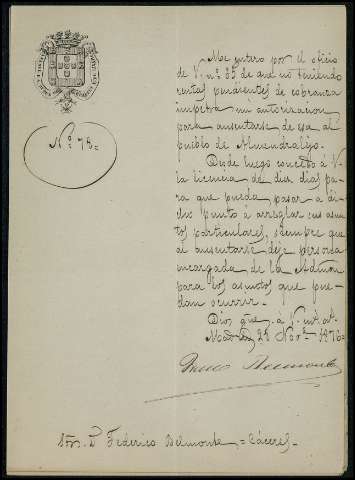 Nº 78=
Me entero por el oficio
de V. nº 85 de que no teniendo
rentas pendientes de cobranza
impetra mi autorizacion
para ausentarse de esa al
pueblo de Almendralejo.
Desde luego concedo á V.
la licencia de diez dias pa-
ra que pueda pasar á di-
cho punto á arreglar sus asun-
tos particulares, siempre que
al ausentarse deje persona
encargada de la Admon
para los asuntos que pue-
dan ocurrir.
Dios gue. á V. m. a.
Madrid 29 Nove. 1876=
Belmonte
Sor. D. Federico Belmonte,= Cáceres-